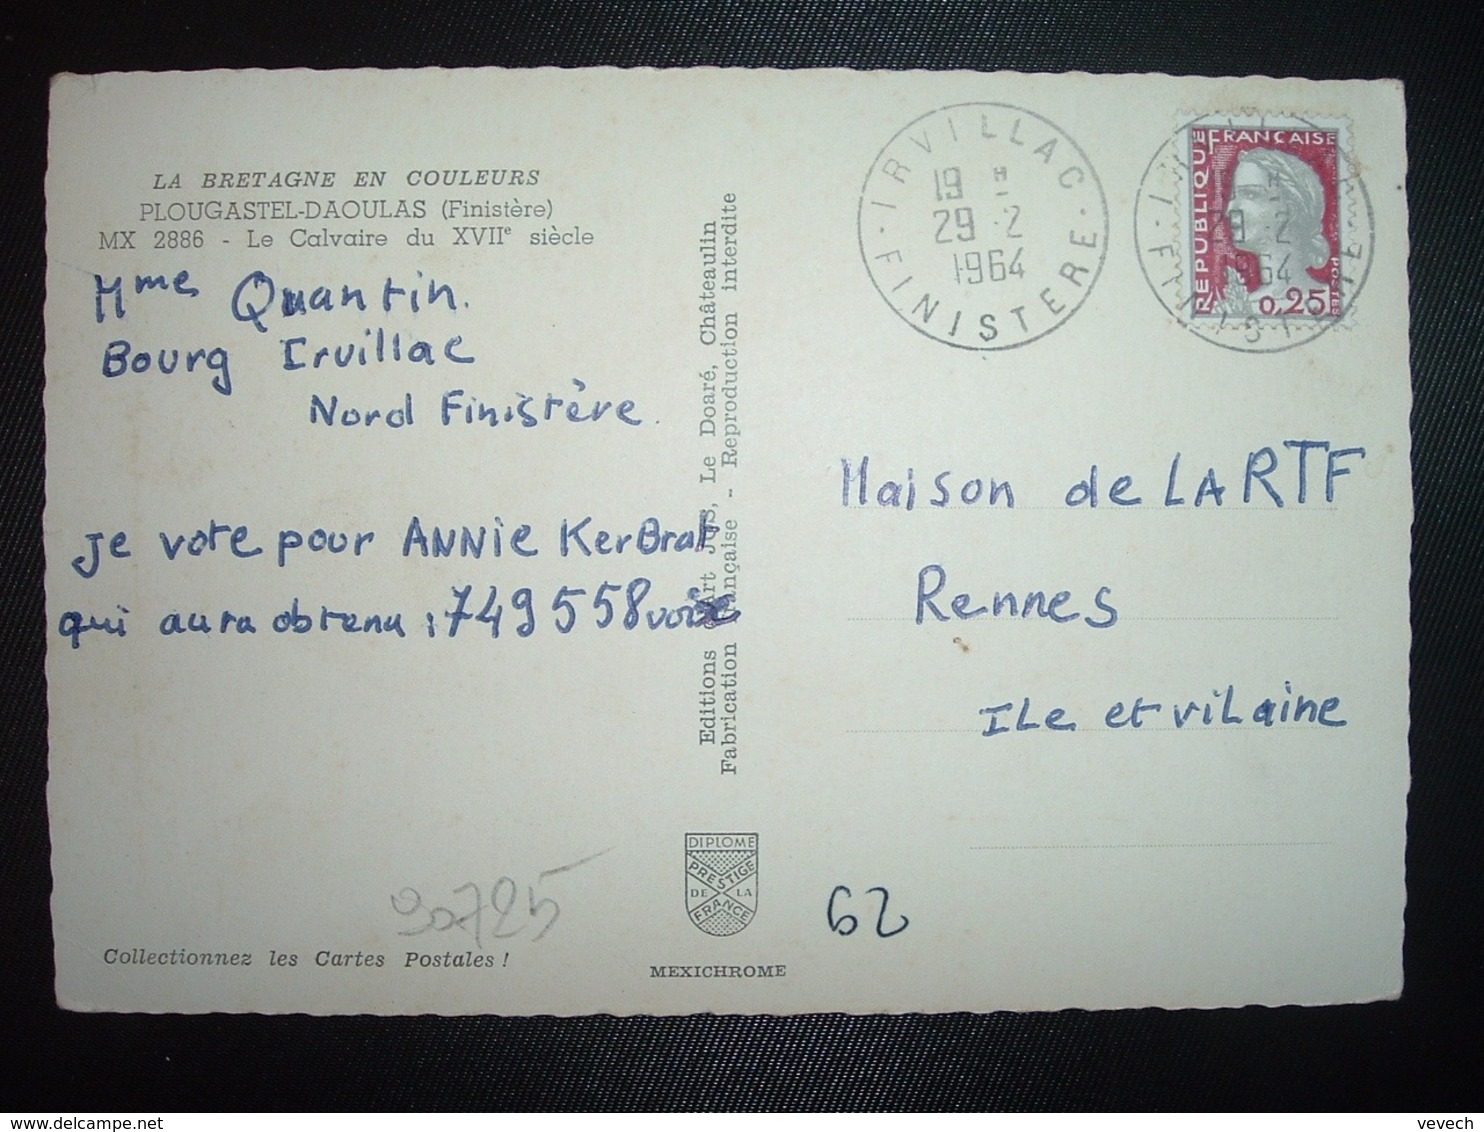 LA BRETAGNE EN COULEURS
PLOUGASTEL-DAOULAS (Finistère)
MX 2886 - Le Calvaire du XVIIe siècle
Mme Quantin.
Bourg Irvillac
Nord Finistère.
Je vote pour ANNIE KerBrat
qui aura obtenu : 749558 voix
Collectionnez les Cartes Postales !
30725
Editions d'Art JOS, Le Doaré, Châteaulin
Fabrication Française - Reproduction interdite
DIPLOME
PRESTIGE
DE LA
FRANCE
MEXICHROME
IRVILLAC
19 H
29 -2
1964
FINISTERE
RÉPUBLIQUE FRANÇAISE
POSTES
0,25
19 -2
1964
Maison de LA RTF
Rennes
ILe et viLaine
62
vevech